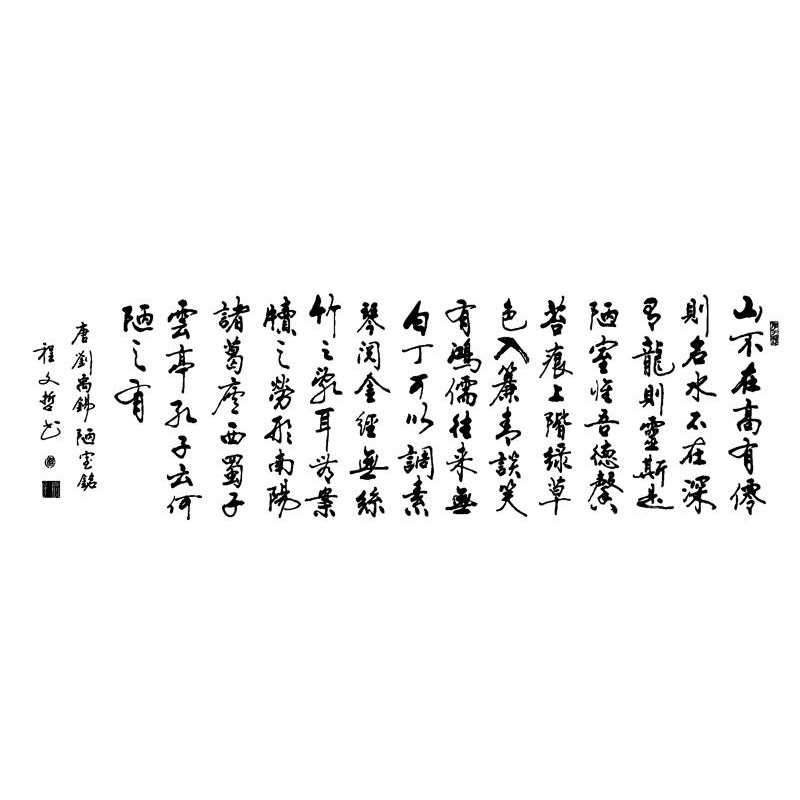 山不在高有僊
則名水不在深
有龍則靈斯是
陋室惟吾德馨
苔痕上階緑草
色入簾青談笑
有鴻儒往来無
白丁可以調素
琴閲金經無絲
竹之亂耳無案
牘之勞形南陽
諸葛廬西蜀子
雲亭孔子云何
陋之有
唐劉禹錫陋室銘
程文哲书